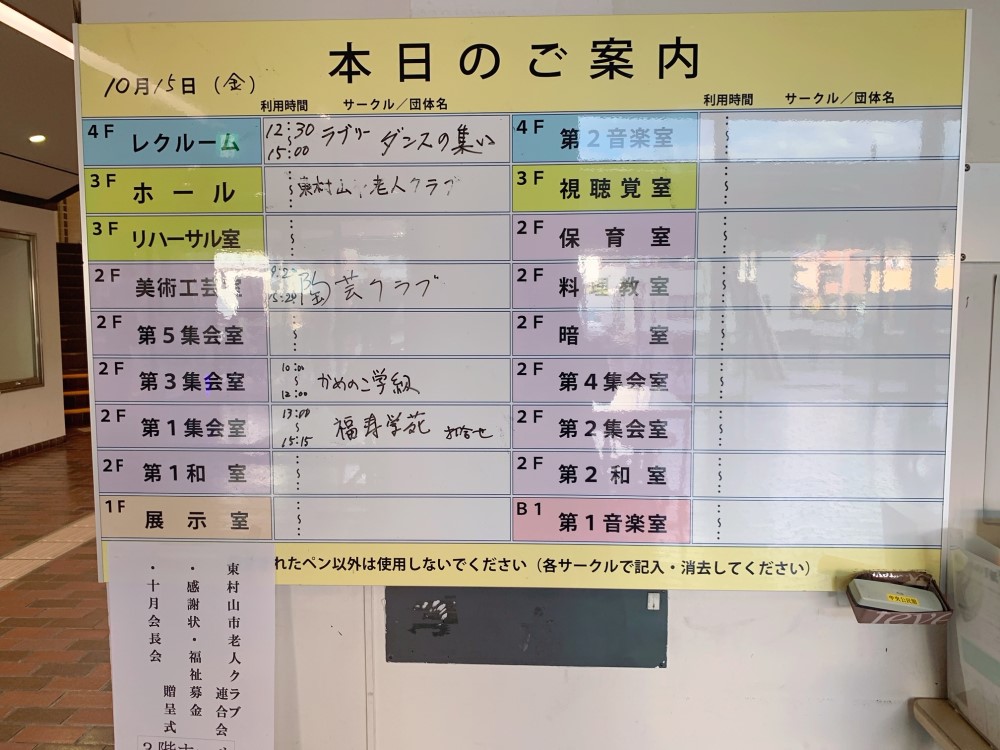 本日のご案内
10月15日（金）
利用時間 サークル／団体名 利用時間 サークル／団体名
4F レクルーム 12:30 〜 15:00 ラブリー ダンスの集い
4F 第2音楽室
3F ホール 東村山 老人クラブ
3F 視聴覚室
3F リハーサル室
2F 保育室
2F 美術工芸室 陶芸クラブ
2F 料理教室
2F 第5集会室
2F 暗室
2F 第3集会室 10:00 〜 12:00 かめのこ学級
2F 第4集会室
2F 第1集会室 13:00 〜 15:15 福寿学苑
2F 第2集会室
2F 第1和室
2F 第2和室
1F 展示室
B1 第1音楽室
れたペン以外は使用しないでください（各サークルで記入・消去してください）
中央公民館
東村山市老人クラブ連合会
・感謝状・福祉募金贈呈式
・十月会長会